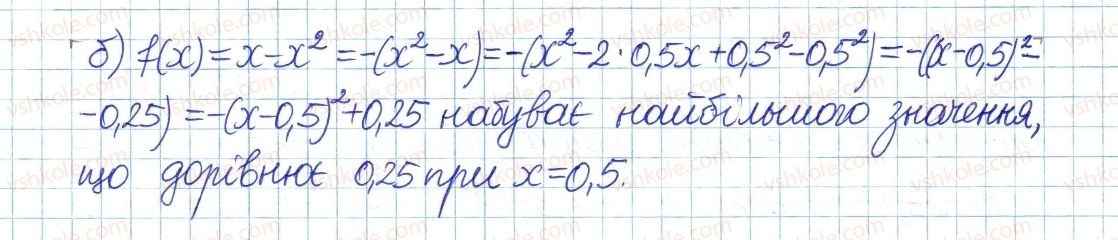 б) f(x) = x-x² = -(x²-x) = -(x²-2·0,5x+0,5²-0,5²) = -((x-0,5)²-
-0,25) = -(x-0,5)²+0,25 набуває найбільшого значення,
що дорівнює 0,25 при x=0,5.